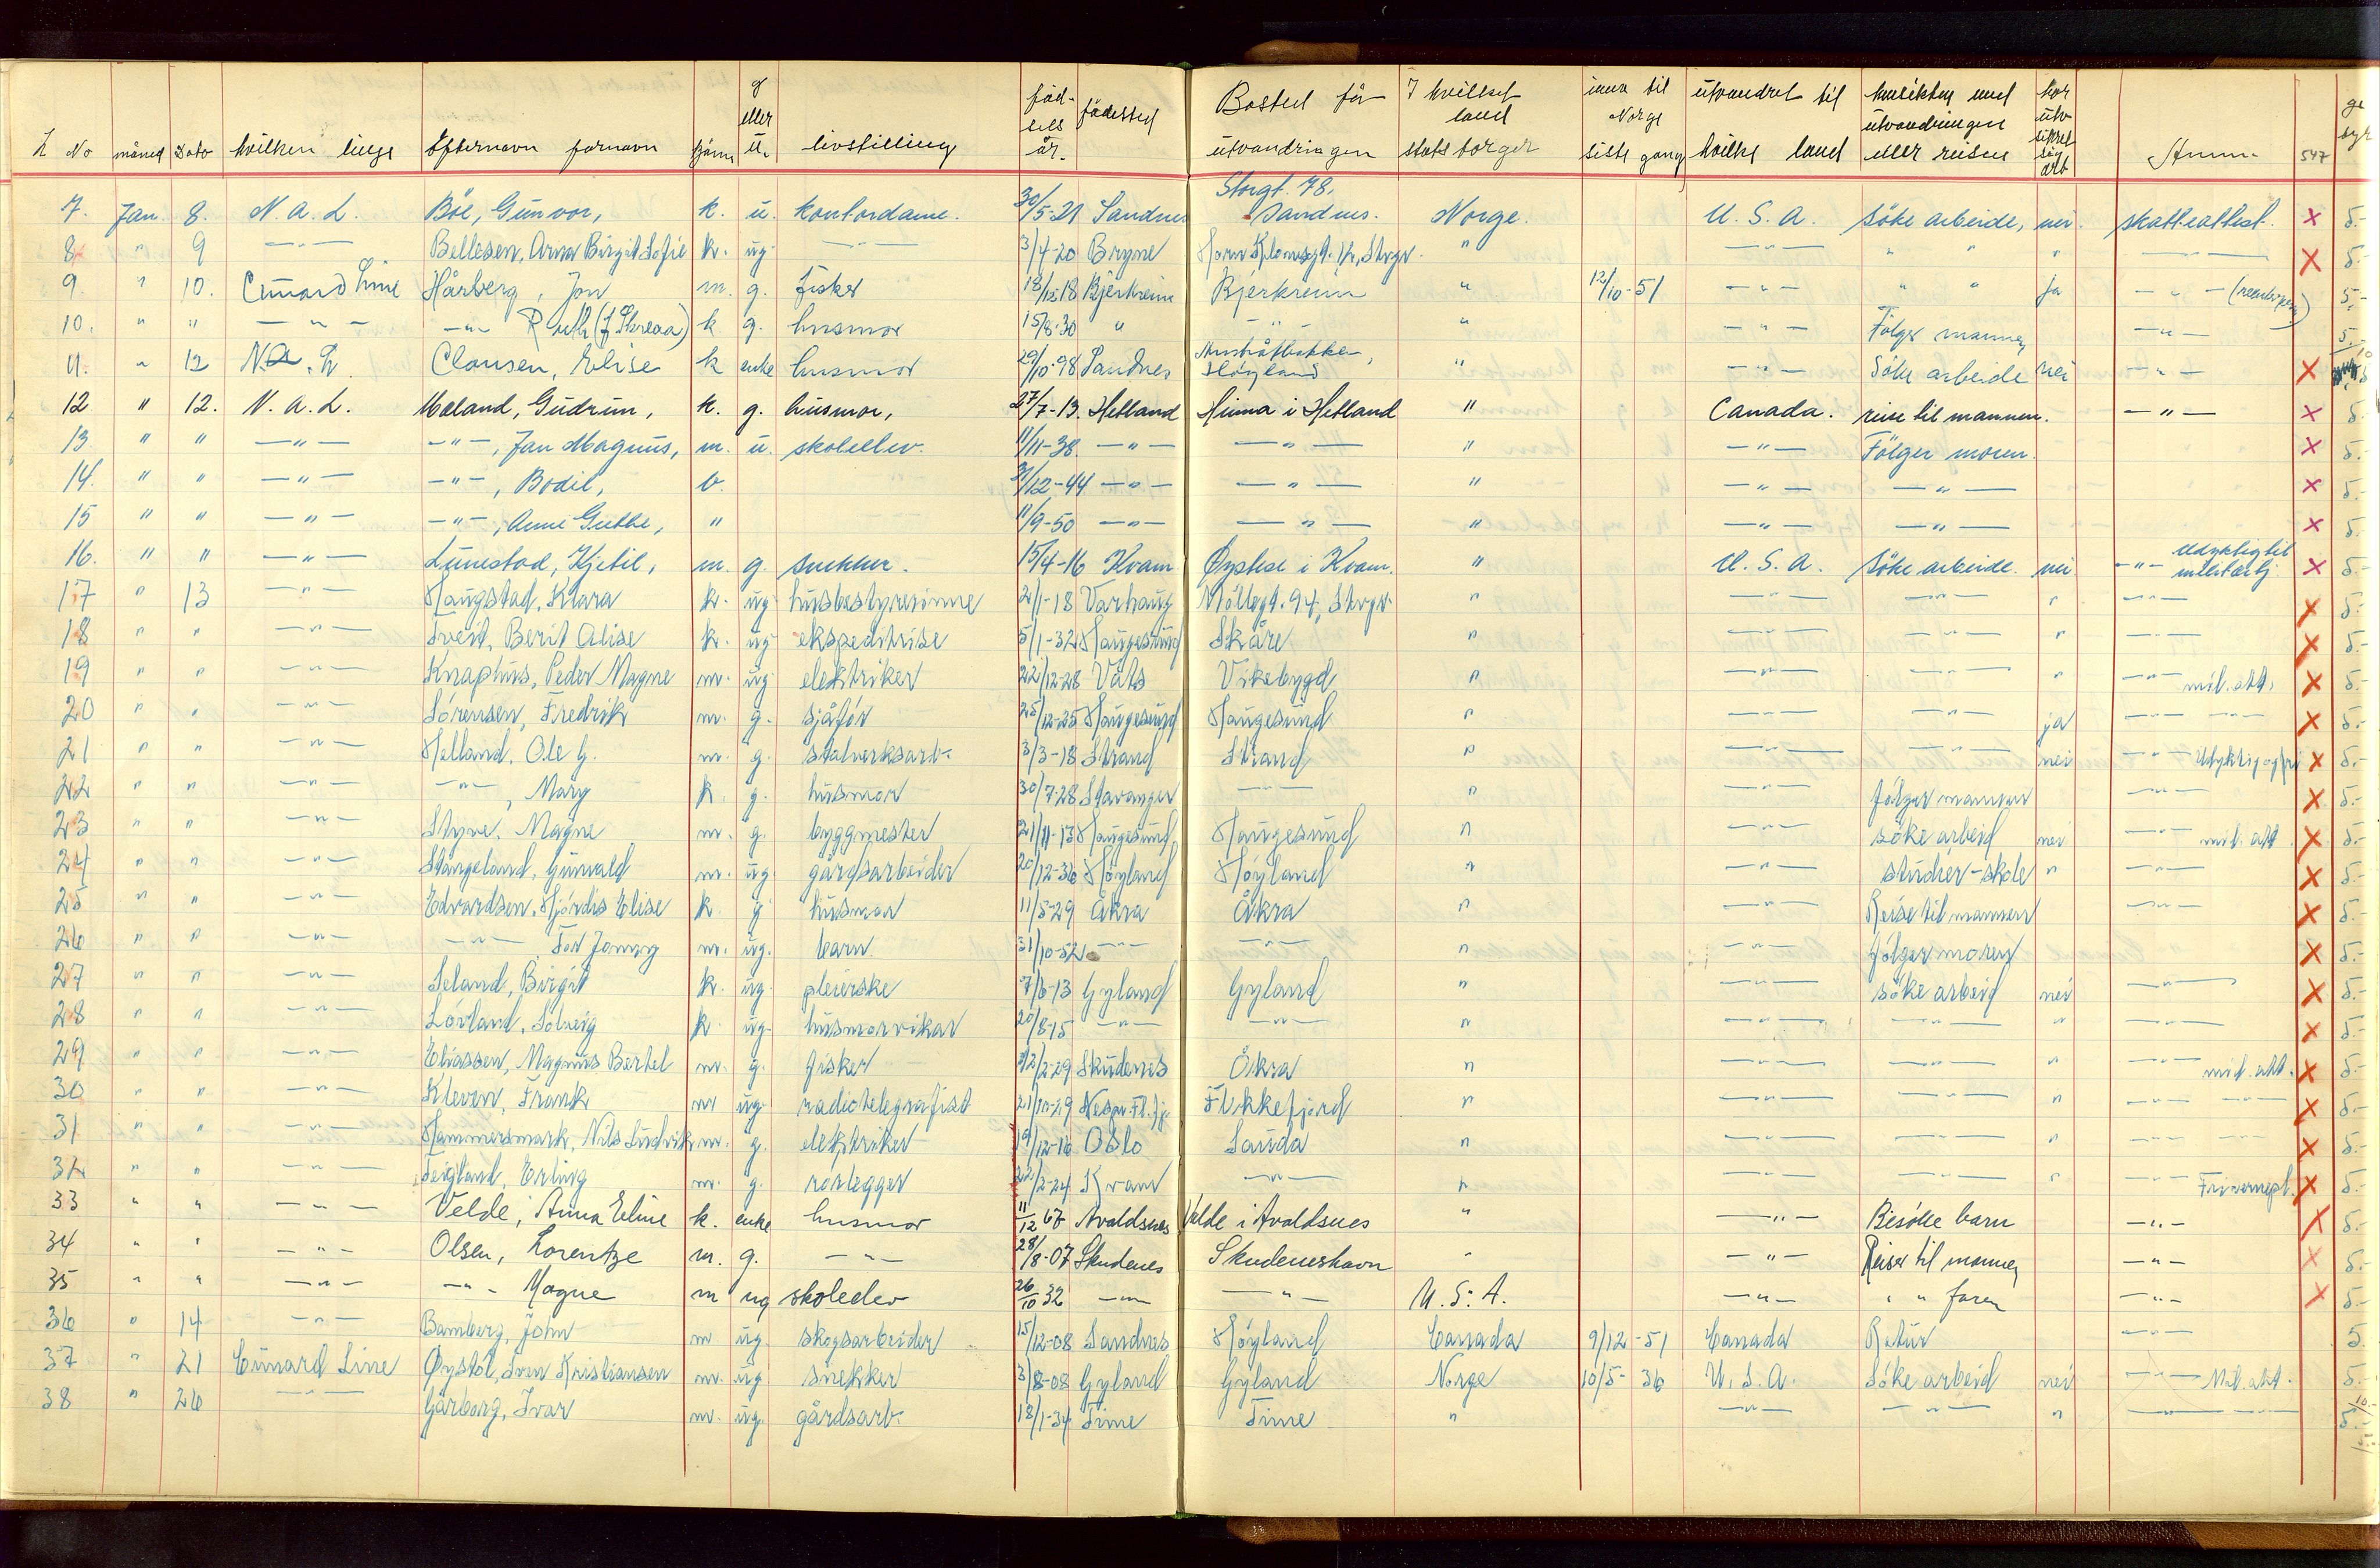 L No måned Dato hvilken linje Efternavn fornavn kjønn g eller u. livstilling fød- sels år. fødested Bosted før utvandringen I hvilket land statsborger innv til Norge siste gang utvandret til hvilke land hensikten med utvandringen eller reisen Har utv sikret sig arb Anm. 547
7. Jan. 8. N. A. L. Böe, Gunvor, k. u. kontordame. 30/5-21 Sandnes Storgt. 78. Sandnes. Norge. U. S. A. Söke arbeide, nei. skatteattest. × 5.-
8 " 9 —"— Bellesen, Anna Birgit Sofie k. ug —"— 3/4-20 Bryne Stvgr. " —"— " " " —"— × 5.-
9 " 10. Cunard Line Hårberg, Jon m. g. fisker 18/12-18 Bjerkreim Bjerkreim " 12/10-51 —"— " " ja —"— 5.-
10. " " —"— —"— Ruth (f Skreaa) k g. husmor 15/8-30 " —"— " —"— Fölger mannen —"— 5.-
11. " 12 N.A.L. Clausen, Elise k enke husmor 29/10-98 Sandnes Høyland " —"— Söke arbeide nei —"— ×
12 " 12. N. A. L. Mæland, Gudrun, k. g. husmor, 27/7-13. Hetland Hinna i Hetland " Canada. reise til mannen. —"— × 5.
13 " " —"— —"—, Jan Magnus, m. u. skoleelev. 11/11-38. —"— —"— " —"— Fölger moren. × 5.-
14. " " —"— —"—, Bodil, b. /12-44 —"— —"— " —"— —"— × 5.-
15 " " —"— —"—, Anne Grethe, " 11/9-50 —"— —"— " —"— —"— × 5.
16. " " —"— Lunestad, Kjetil, m. g. snekker. 15/4-16 Kvam Øystese i Kvam. " U. S. A. Söke arbeide. nei —"— Udyktig til × 5.-
17 " 13 —"— Haugstad, Klara k. ug husbestyrerinne 2/1-18 Varhaug Möllegt. 94, Stvgr. " —"— —"— " —"— × 5.-
18 " " —"— Tveit, Berit Alise k. ug ekspeditrise 5/1-32 Haugesund Skåre " —"— —"— " —"— × 5.-
19 " " —"— Knaphus, Peder Magne m. ug elektriker 22/12-28 Vats Vikebygd " —"— —"— " —"— mil. att. × 5.-
20 " " —"— Sörensen, Fredrik m. g. sjåför 25/12-25 Haugesund Haugesund " —"— —"— ja —"— —"— × 5.-
21 " " —"— Helland, Ole G. m. g. stålverksarb. 3/3-18 Strand Strand " —"— —"— nei —"— × 5.-
22 " " —"— —"—, Mary k. g. husmor 30/7-28 Stavanger —"— " —"— fölger mannen —"— × 5.-
23 " " —"— Styve, Magne m. g. byggmester 21/11-13 Haugesund Haugesund " —"— söke arbeid nei —"— mil. att × 5.-
24 " " —"— Stangeland, Gunvald m. ug gårdsarbeider 20/12-36 Höyland Höyland " —"— studier-skole " —"— × 5.-
25 " " —"— Edvardsen, Hjördis Elise k. g husmor 11/5-29 Åkra Åkra " —"— Reise til mannen —"— × 5.-
26 " " —"— —"— Tor Jonny m. ug. barn 31/10-52 —"— —"— " —"— fölger moren × 5.-
27 " " —"— Seland, Birgit k. ug. pleierske 7/6-13 Gyland Gyland " —"— söke arbeid nei —"— × 5.-
28 " " —"— Lövland, Solveig k. ug. husmorvikar 20/8-15 —"— —"— " —"— —"— " —"— × 5.-
29 " " —"— Eliassen, Magnus Bertel m. g. fisker /2-29 Skudenes Åkra " —"— —"— " —"— mil. att. × 5.-
30 " " —"— Kleven, Frank m ug. radiotelegrafist 21/10-29 Flekkefjord " —"— —"— " —"— —"— × 5.-
31 " " —"— Hammersmark, Nils Ludvik m. g. elektriker 19/12-16 Oslo Sauda " —"— —"— " —"— —"— × 5.-
32 " " —"— Teigland, Erling m. g. rörlegger 22/2-24 Kvam —"— " —"— —"— " —"— × 5.-
33 " " —"— Velde, Anna Eline k. enke husmor 11/12 67 Avaldsnes Velde i Avaldsnes " —"— Besöke barn —"— × 5.-
34 " " —"— Olsen, Lorentze m. g. —"— 28/8-07 Skudenes Skudeneshavn " —"— Reiser til mannen —"— × 5.-
35 " " —"— —"— Magne m ug skoleelev 26/10 32 —"— —"— U. S. A. —"— " " faren —"— × 5.-
36 " 14 —"— Bamberg, John m ug. skogsarbeider 15/12-08 Sandnes Höyland Canada 9/12-51 Canada Retur —"— 5.
37 " 21 Cunard Line Øystöl, Sven Kristiansen m. ug snekker 3/8-08 Gyland Gyland Norge 10/5-36 U. S. A. Söke arbeid nei —"— Mil. att. 5.-
38 " 26 —"— Gårborg, Ivar m. ug. gårdsarb. 18/1-34 Time Time " —"— —"— " —"— —"— 5.